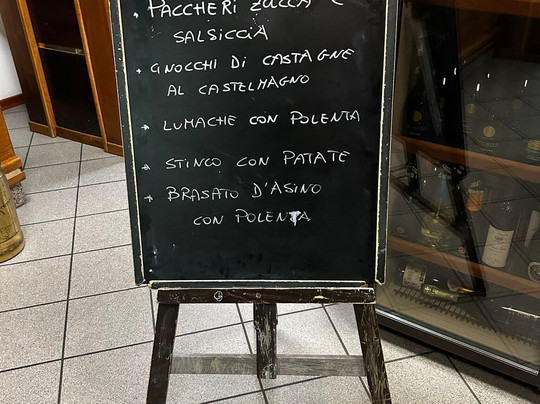 PACCHERI ZUCCA E
SALSICCIA
GNOCCHI DI CASTAGNE
AL CASTELMAGNO
LUMACHE CON POLENTA
STINCO CON PATATE
BRASATO D'ASINO
CON POLENTA